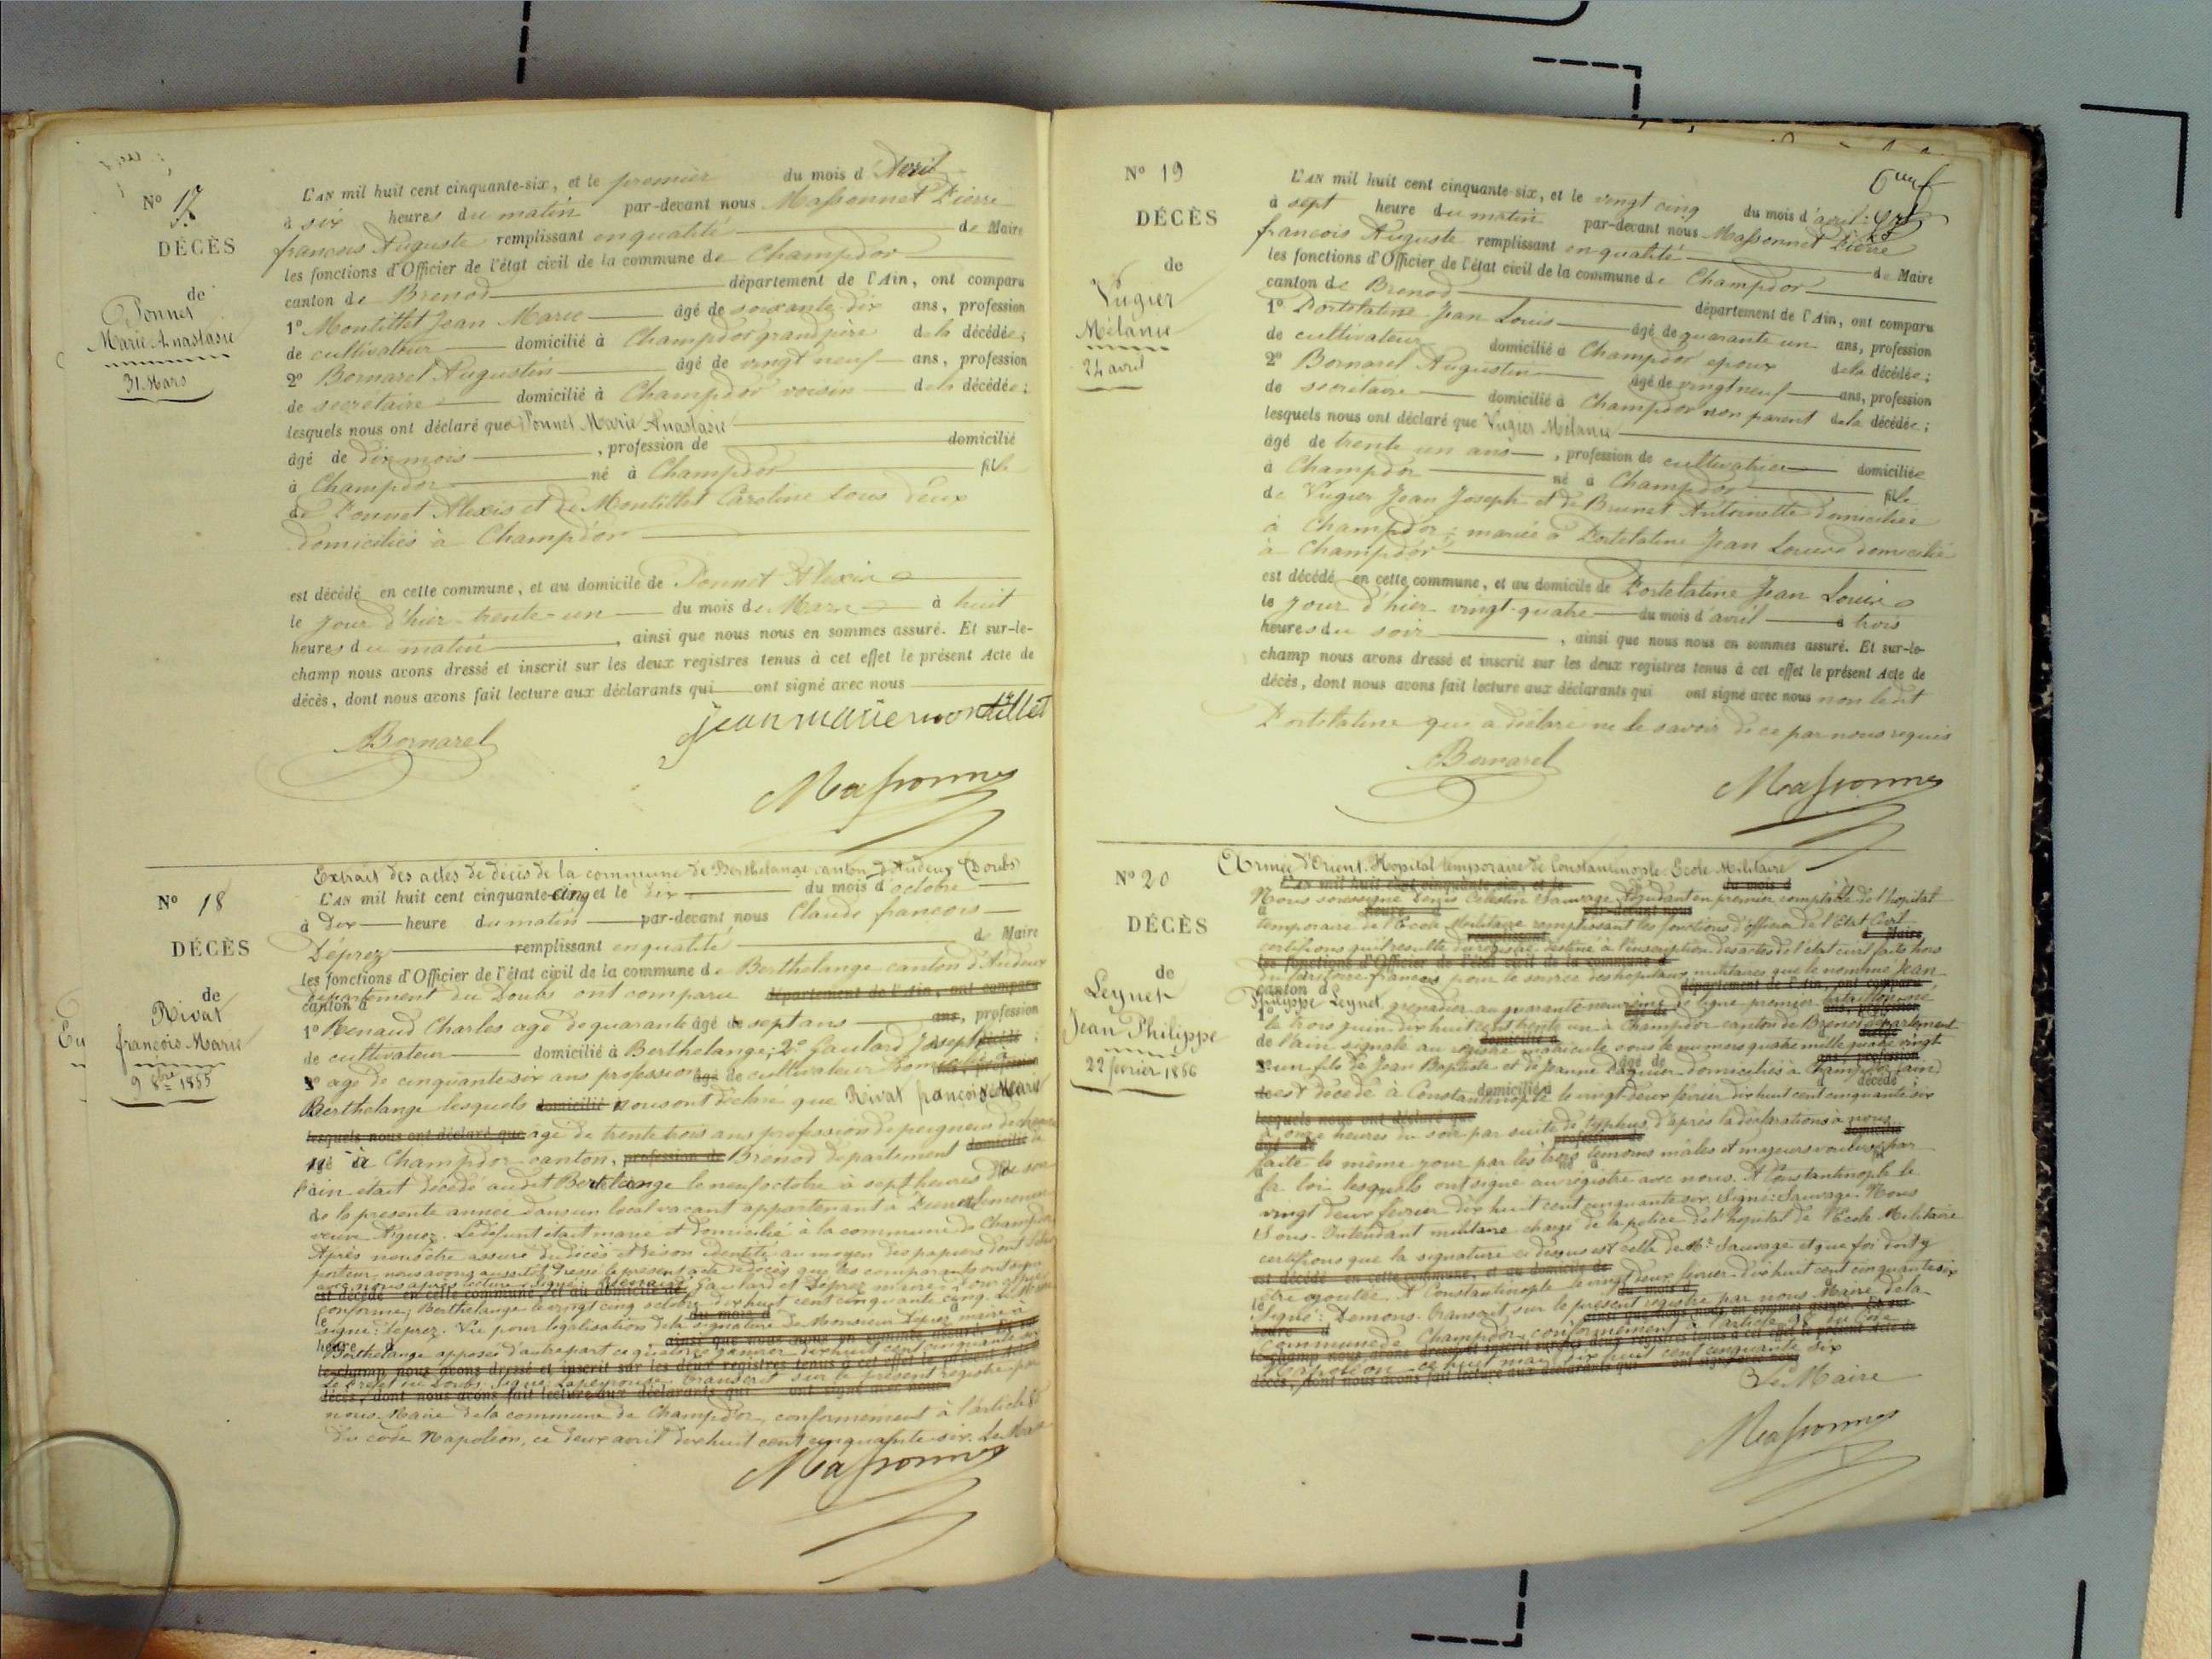 N° 17
DÉCÈS
de
Ponnet
Marie Anastasie
31 Mars
L'AN mil huit cent cinquante-six, et le premier du mois d'Avril
à six heures du matin par-devant nous Massonnet Pierre
françois Auguste remplissant en qualité de Maire
les fonctions d'Officier de l'état civil de la commune de Champdor
canton de Brenod département de l'Ain, ont comparu
1° Montillet Jean Marie âgé de soixante dix ans, profession
de cultivateur domicilié à Champdor grand père de la décédée;
2° Bornarel Augustin âgé de vingt neuf ans, profession
de secretaire domicilié à Champdor voisin de la décédée;
lesquels nous ont déclaré que Ponnet Marie Anastasie
âgé de dix mois, profession de domicilié
à Champdor né à Champdor fille
de Ponnet Alexis et de Montillet Caroline tous deux
domiciliés à Champdor
est décédé en cette commune, et au domicile de Ponnet Alexis
le jour d'hier trente-un du mois de Mars à huit
heures du matin, ainsi que nous nous en sommes assuré. Et sur-le-
champ nous avons dressé et inscrit sur les deux registres tenus à cet effet le présent Acte de
décès, dont nous avons fait lecture aux déclarants qui ont signé avec nous
Bornarel jean marie montillet
Massonnet
N° 18
DÉCÈS
de
Rivat
françois Marie
9 8bre 1855
Extrait des actes de décès de la commune de Berthelange canton d'Audeux (Doubs)
L'AN mil huit cent cinquante-cinq et le dix du mois d'octobre
à Dix heure du matin par-devant nous Claude françois
Déprez remplissant en qualité de Maire
les fonctions d'Officier de l'état civil de la commune de Berthelange canton d'Audeux
département du Doubs ont comparu
1° Renaud Charles agé de quarante sept ans, profession
de cultivateur domicilié à Berthelange; 2° Gaulard Joseph
agé de cinquante six ans profession de cultivateur
Berthelange lesquels nous ont déclaré que Rivat françois Marie
âgé de trente trois ans profession de peigneur de chanvre
né à Champdor canton de Brenod département de
l'ain était décédé audit Berthelange le neuf octobre à sept heures du soir
de la presente année dans un local vacant appartenant à
veuve . Le défunt était marié et domicilié à la commune de Champdor
Après nous être assuré du décès et de son identité au moyen des papiers dont
porteur nous avons aussitôt dressé le présent acte de décès que les comparants ont signé
avec nous après lecture. Signé: Renaud, Gaulard et Déprez maire. Pour copie
conforme; Berthelange le vingt cinq octobre dix huit cent cinquante cinq.
signé: Déprez. Vu pour légalisation de la signature de Monsieur Déprez maire à
Berthelange apposée d'autre part ce janvier dix huit cent cinquante six
Le Préfet du Doubs. Signé: Transcrit sur le présent registre par
nous Maire de la commune de Champdor, conformément à l'article
du code Napoléon, ce deux avril dix huit cent cinquante six. Le Maire
Massonnet
N° 19
DÉCÈS
de
Vugier
Mélanie
24 avril
L'AN mil huit cent cinquante-six, et le vingt cinq du mois d'avril
à sept heure du matin par-devant nous Massonnet Pierre
francois Auguste remplissant en qualité de Maire
les fonctions d'Officier de l'état civil de la commune de Champdor
canton de Brenod département de l'Ain, ont comparu
1° Portelatine Jean Louis âgé de quarante un ans, profession
de cultivateur domicilié à Champdor époux de la décédée;
2° Bornarel Augustin âgé de vingt neuf ans, profession
de secretaire domicilié à Champdor non parent de la décédée;
lesquels nous ont déclaré que Vugier Mélanie
âgé de trente un ans, profession de cultivatrice domiciliée
à Champdor né à Champdor fille
de Vugier Jean Joseph et de Brunet Antoinette domiciliée
à Champdor; mariée à Portelatine Jean Louis domicilié
à Champdor
est décédé en cette commune, et au domicile de Portelatine Jean Louis
le jour d'hier vingt-quatre du mois d'avril à trois
heures du soir, ainsi que nous nous en sommes assuré. Et sur-le-
champ nous avons dressé et inscrit sur les deux registres tenus à cet effet le présent Acte de
décès, dont nous avons fait lecture aux déclarants qui ont signé avec nous non ledit
Portelatine qui a déclaré ne le savoir de ce par nous requis
Bornarel
Massonnet
N° 20
DÉCÈS
de
Leynet
Jean Philippe
22 fevrier 1856
Armée d'Orient. Hopital temporaire de Constantinople Ecole Militaire
Nous soussigné Louis Celestin Sauvage, adjudant en premier comptable de l'hopital
temporaire de l'Ecole Militaire remplissant les fonctions d'officier de l'Etat Civil
certifions qu'il resulte du registre destiné à l'inscription des actes de l'état civil faits hors
du territoire français pour le service des hopitaux militaires que le nommé Jean
Philippe Leynet, grenadier au quarante neuvième de ligne premier bataillon né
le trois juin dix huit cent trente un à Champdor canton de Brenod département
de l'ain, signalé au registre matricule sous le numero quatre mille quatre vingt
un fils de Jean Baptiste et de Jeanne domiciliés à Champdor (ain)
est décédé à Constantinople le vingt-deux fevrier dix huit cent cinquante six
à onze heures du soir par suite de Typhus d'après la déclaration à nous
faite le même jour par les trois temoins mâles et majeurs voulus par
la loi lesquels ont signé au registre avec nous. A Constantinople le
vingt deux fevrier dix huit cent cinquante six. Signé: Sauvage. Nous
Sous-Intendant militaire chargé de la police de l'hopital de l'Ecole Militaire
certifions que la signature ci dessus est celle de Mr Sauvage et que foi doit y
être ajoutée. A Constantinople le vingt deux fevrier dix huit cent cinquante six
Signé: Demons. Transcrit sur le présent registre par nous Maire de la
Commune de Champdor, conformément à l'article 98 du Code
Napoléon ce huit mai dix huit cent cinquante six
Le Maire
Massonnet